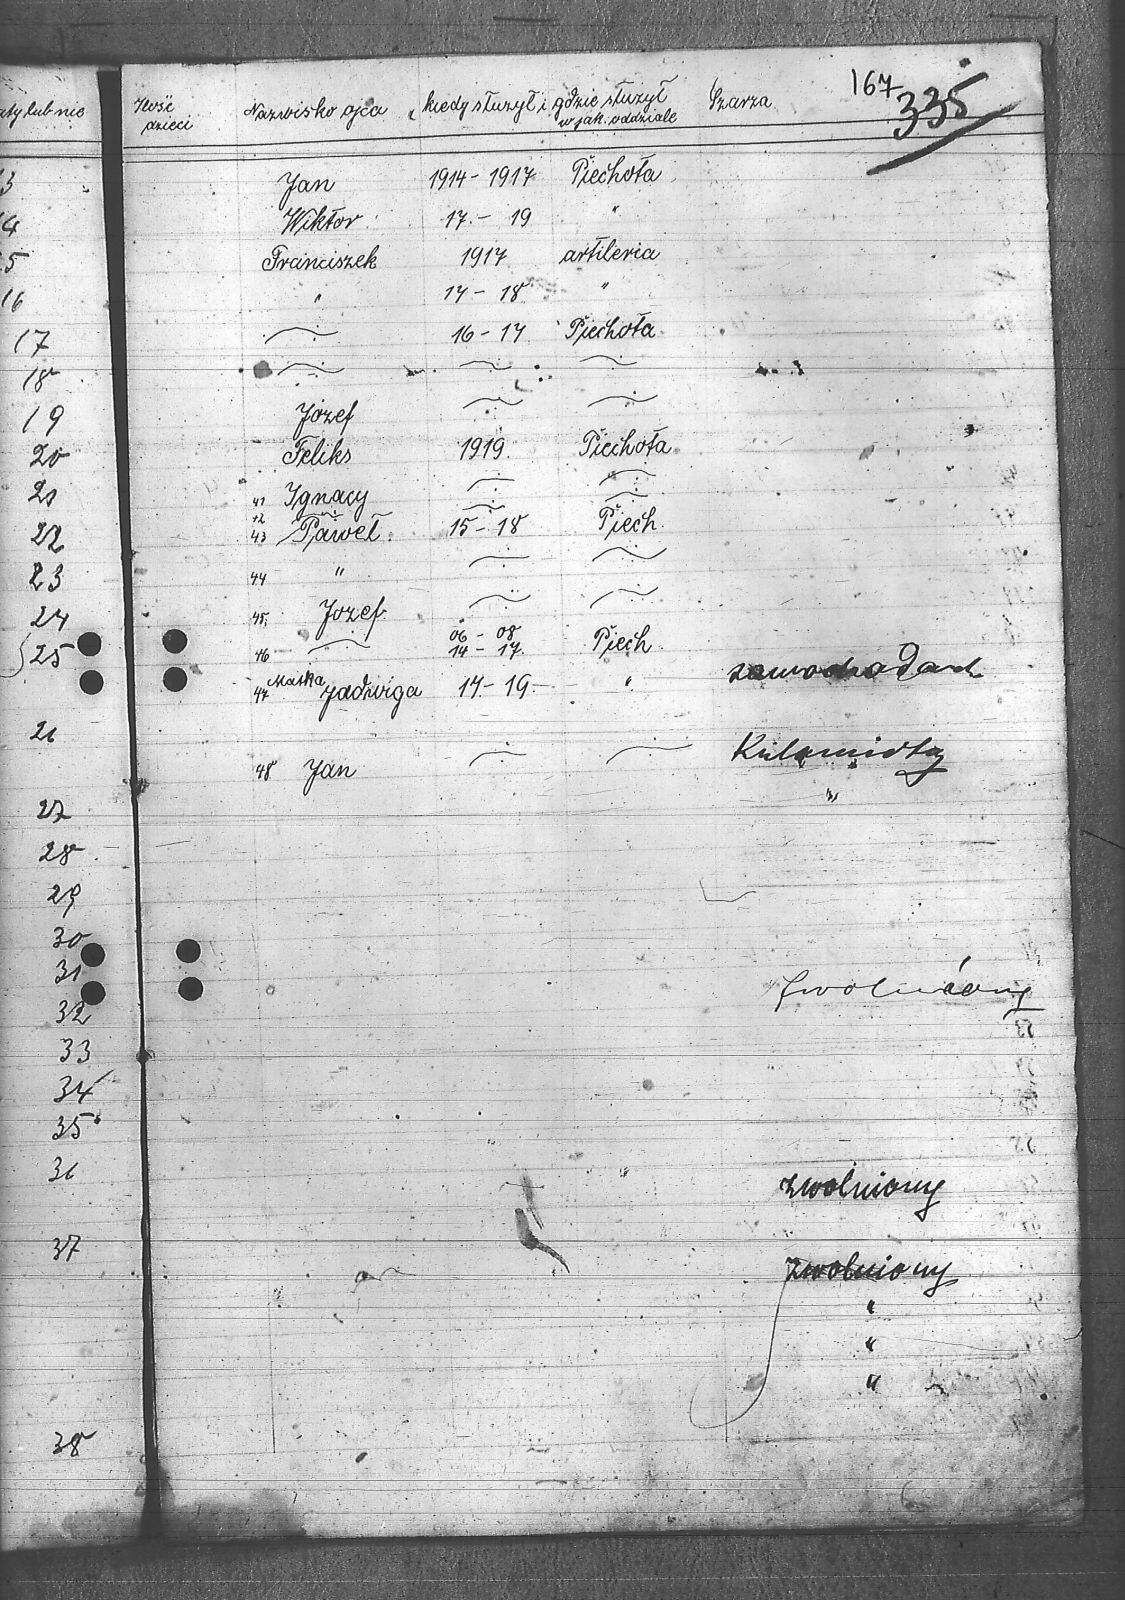 167
335
aty lub nie Ilość dzieci Nazwisko ojca kiedy służył i gdzie służył w jak. oddziale Szarża
13 Jan 1914 - 1917 Piechota
14 Wiktor 17. - 19 "
15 Franciszek 1917 artileria
16 " 17 - 18 "
17 16 - 17 Piechota
18
19 Józef
20 Feliks 1919. Piechota
21 41 Ignacy
42
22 43 Paweł. 15 - 18 Piech.
23 44 "
24 45. Józef
06 - 08
25 46 14 - 17 Piech
47 Matka Jadwiga 17 - 19 - "
26
48 Jan
"
27
28
29
30
31
32
33
34
35
36 zwolniony
37 zwolniony
"
"
"
38